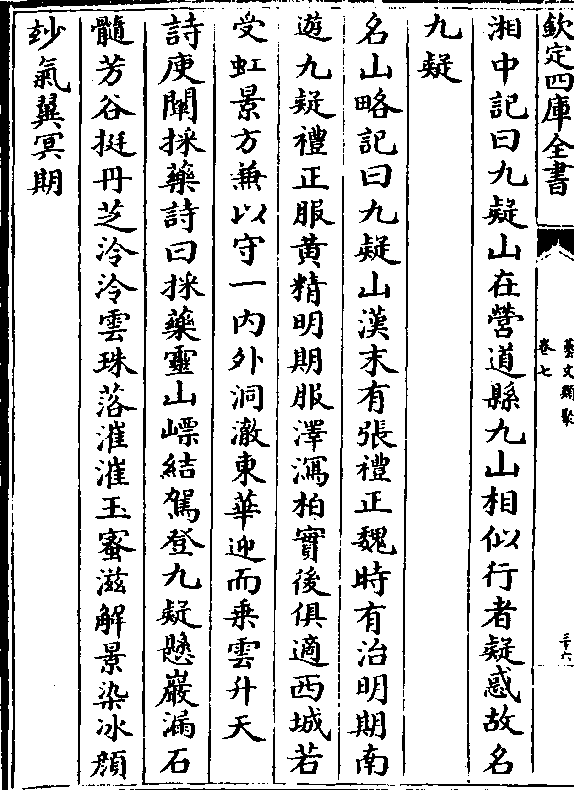 欽定四庫全書
藝文類聚
卷七
三十六
湘中記曰九疑山在營道縣九山相似行者疑惑故名
九疑
名山略記曰九疑山漢末有張禮正魏時有治明期南
遊九疑禮正服黃精明期服澤瀉柏實後俱適西城若
受虹景方兼以守一内外洞澈東華迎而乗雲升天
詩庾闡採藥詩曰採藥靈山嶛結駕登九疑懸巖漏石
髓芳谷挺丹芝泠泠雲珠落漼漼玉蜜滋解景染冰顔
玅氣翼冥期